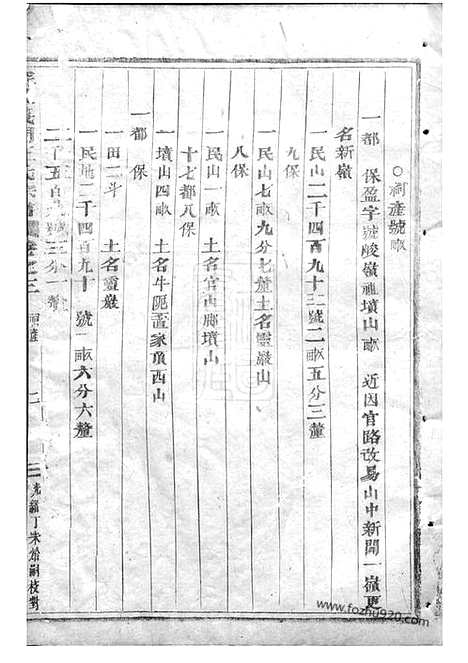 ○祠產號畝
一都 保盈字號峻嶺雅墳山畝 近因官路改易山中新開一嶺更
名新嶺
一民山二千四百九十三號二畝五分三釐
九保
一民山七畝九分七釐土名靈巖山
八保
一民山一畝 土名官山廊墳山
十七都八保
一墳山四畝 土名牛 山
一都 保
一田二斗 土名靈巖
一民地二千四百九十 號一畝六分六釐
二千五百 三分一釐
卷之三 祠產 二 三 光緒丁未 校對
www.fozhu920.com